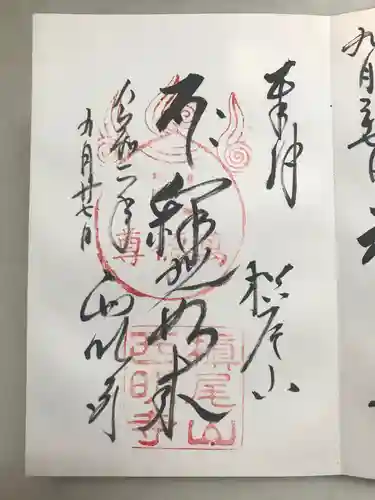 奉拝
槇尾山
釋迦如来
令和二年
九月廿七日
西明寺
尊
槇尾山
西明寺